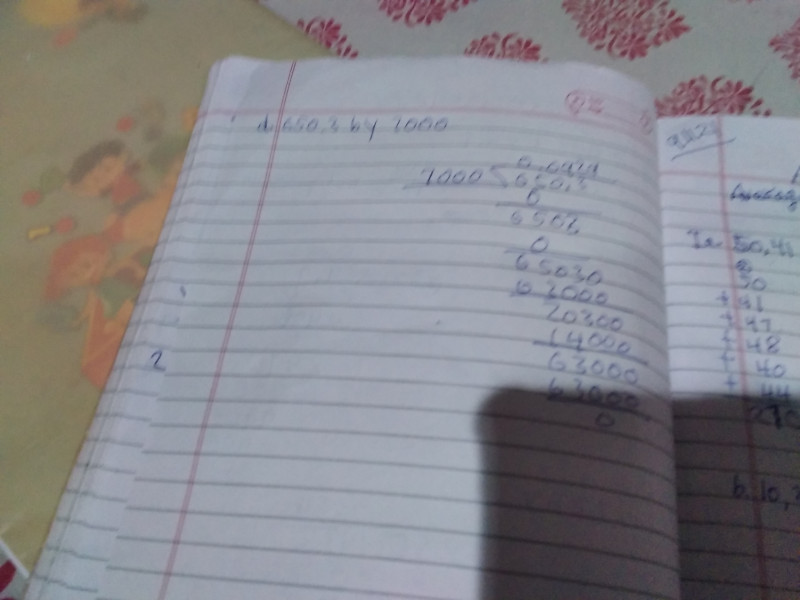 d. 650.3 by 7000
0.0929
7000 650.3
0
6503
0
65030
63000
20300
14000
63000
63000
0
2
50, 41
50
+ 41
+ 47
+ 48
+ 40
+ 44
270
b. 10,